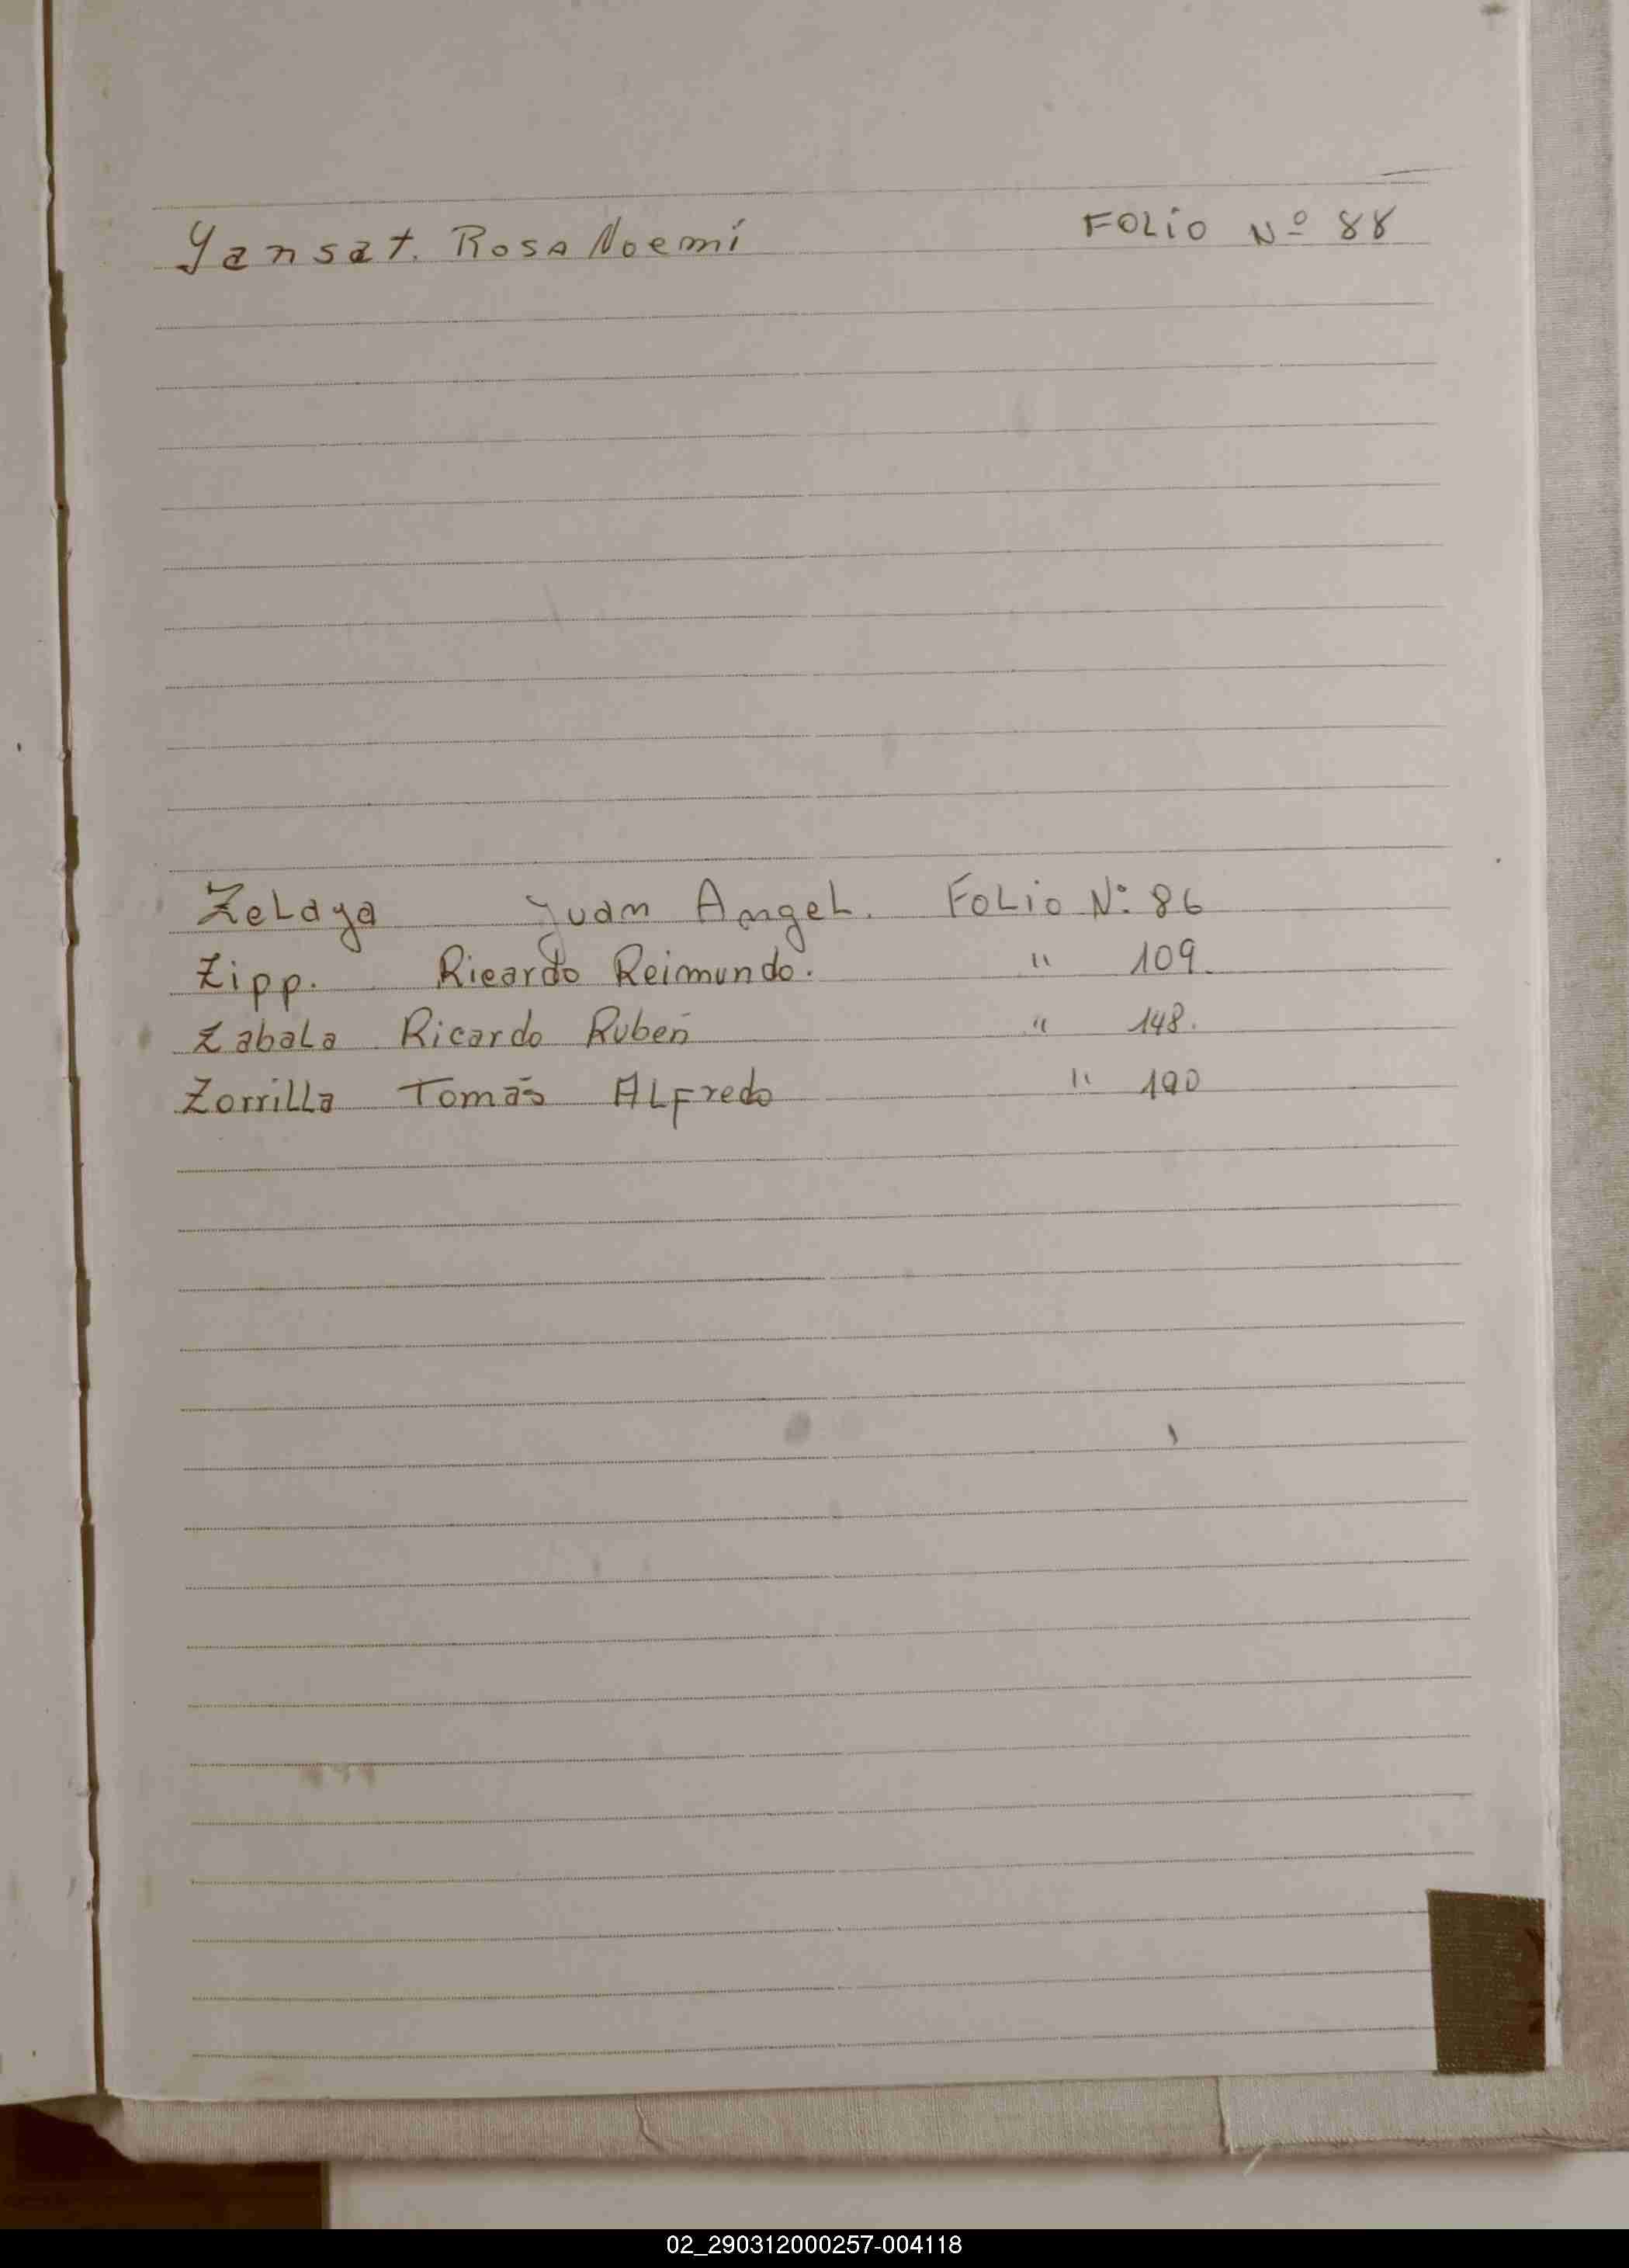 Yansat. Rosa Noemí FOLIO Nº 88
Zelaya Juan Angel. Folio Nº 86
Zipp. Ricardo Reimundo. " 109
Zabala Ricardo Ruben " 148.
Zorrilla Tomás Alfredo " 190
02_290312000257-004118